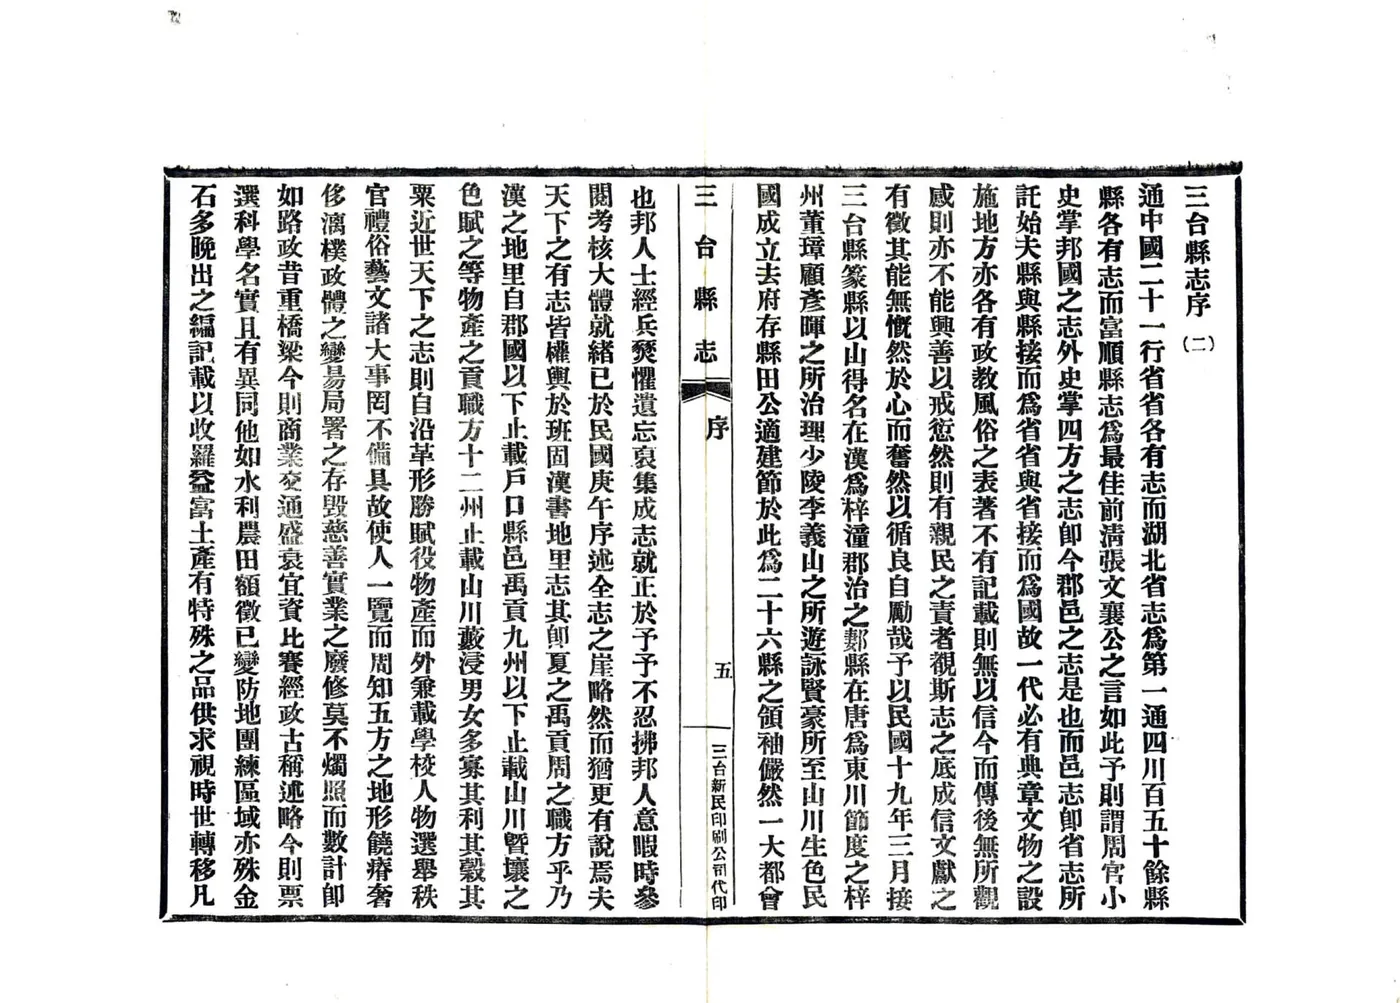 三台縣志序 (二)
通中國二十一行省省各有志而湖北省志爲第一通四川百五十餘縣
縣各有志而富順縣志爲最佳前淸張文襄公之言如此予則謂周官小
史掌邦國之志外史掌四方之志卽今郡邑之志是也而邑志卽省志所
託始夫縣與縣接而爲省省與省接而爲國故一代必有典章文物之設
施地方亦各有政教風俗之表著不有記載則無以信今而傳後無所觀
感則亦不能興善以戒愆然則有親民之責者觀斯志之底成信文獻之
有徵其能無慨然於心而奮然以循良自勵哉予以民國十九年三月接
三台縣篆縣以山得名在漢爲梓潼郡治之郪縣在唐爲東川節度之梓
州董璋顧彥暉之所治理少陵李義山之所遊詠賢豪所至山川生色民
國成立去府存縣田公適建節於此爲二十六縣之領袖儼然一大都會
三台縣志
序
五
三台新民印刷公司代印
也邦人士經兵燹懼遺忘裒集成志就正於予予不忍拂邦人意暇時參
閱考核大體就緒已於民國庚午序述全志之崖略然而猶更有說焉夫
天下之有志皆權輿於班固漢書地里志其卽夏之禹貢周之職方乎乃
漢之地里自郡國以下止載戶口縣邑禹貢九州以下止載山川曁壤之
色賦之等物產之貢職方十二州止載山川藪浸男女多寡其利其穀其
粟近世天下之志則自沿革形勝賦役物產而外兼載學校人物選舉秩
官禮俗藝文諸大事罔不備具故使人一覽而周知五方之地形饒瘠奢
侈漓樸政體之變易局署之存毀慈善實業之廢修莫不燭照而數計卽
如路政昔重橋梁今則商業交通盛衰宜資比賽經政古稱述略今則票
選科學名實且有異同他如水利農田額徵已變防地團練區域亦殊金
石多晚出之編記載以收羅益富土產有特殊之品供求視時世轉移凡